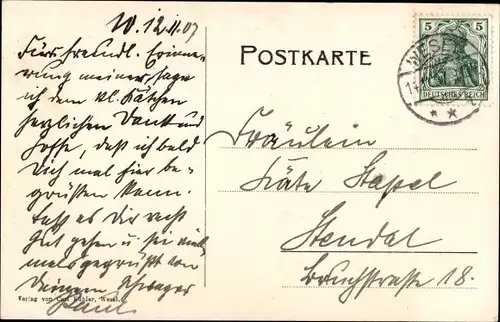 W. 12.11.07
Fürs freundl. Erinne-
rung meiner sage
ich dem kl. Kätchen
herzlichen Dank und
hoffe, daß ich bald
Dich mal hier be-
grüßen kann.
Laß es Dir recht
gut gehen u. sei viel-
mals gegrüßt von
Deinem Schwager
Paul
Verlag von Carl Kühler, Wesel.
POSTKARTE
5 5
DEUTSCHES REICH
WESEL
Fräulein
Käte Stapel
Stendal
Bruchstraße 18.